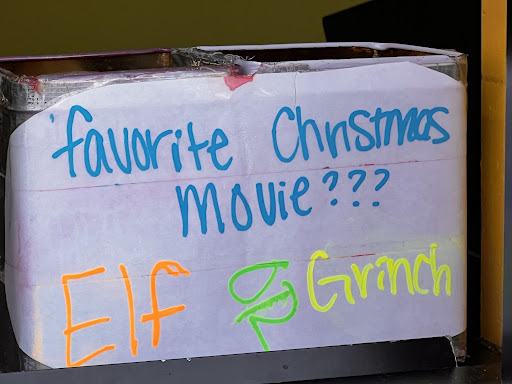 favorite Christmas
movie???
Elf or Grinch